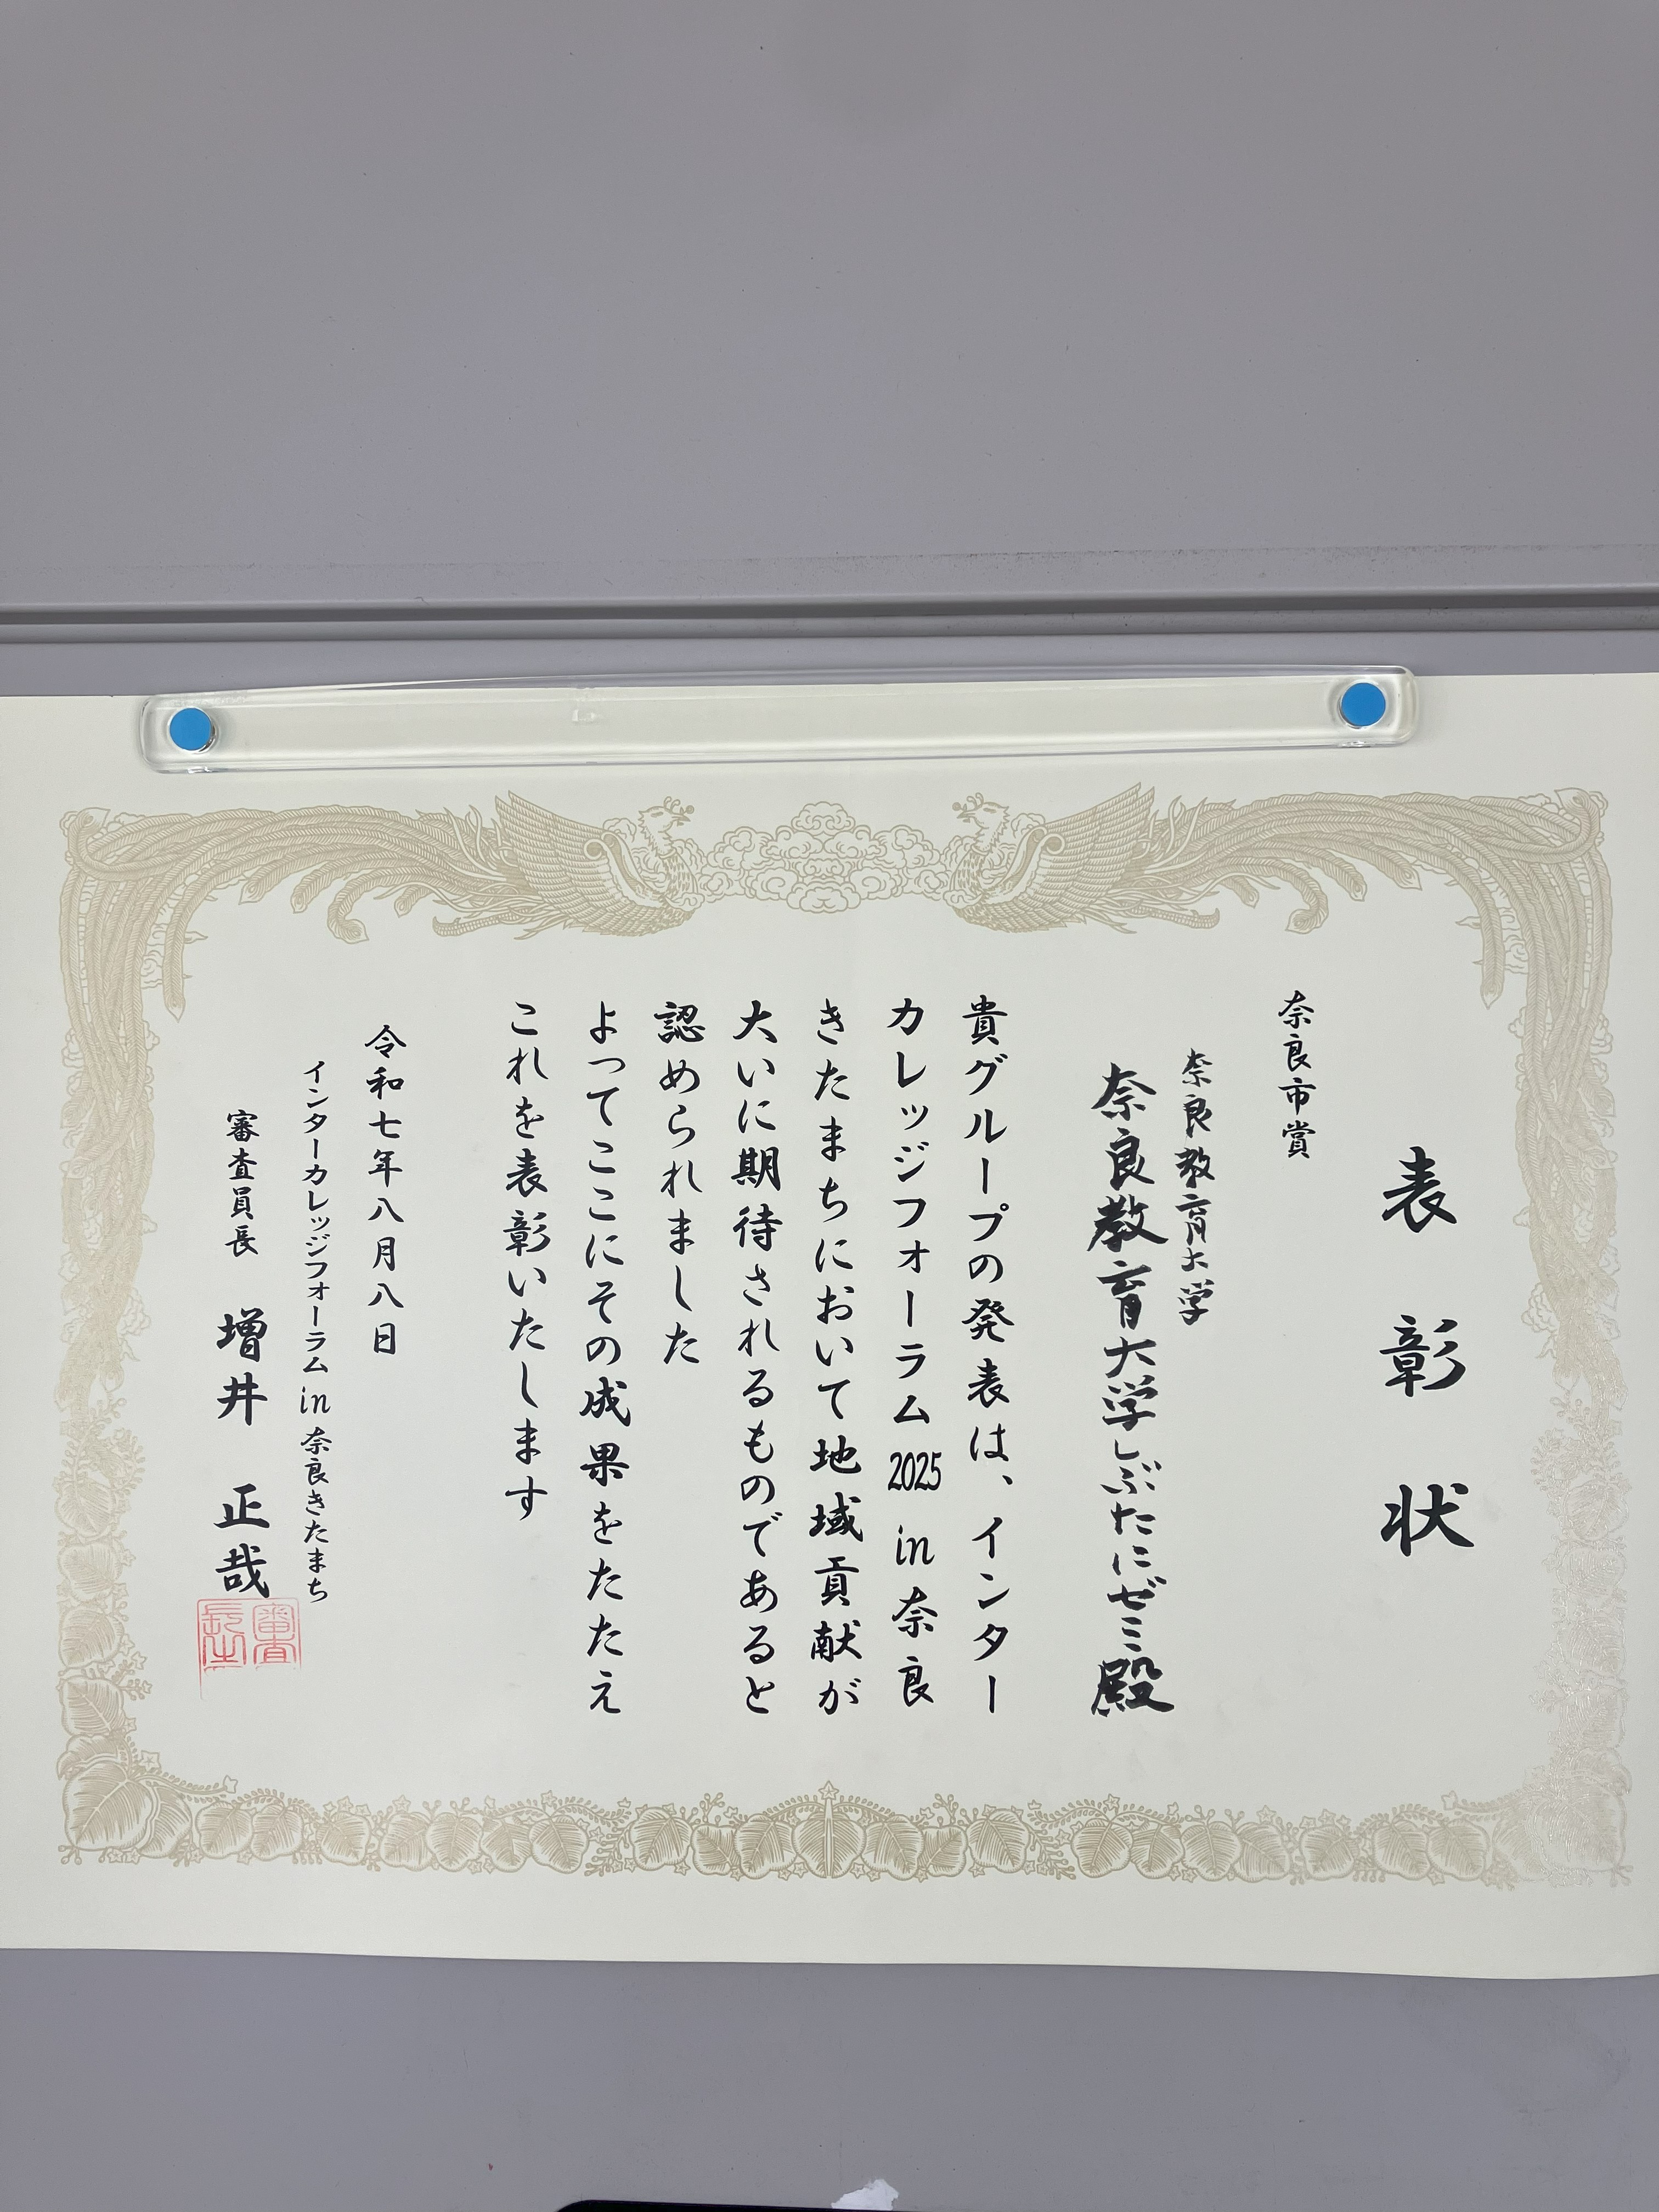 表彰状
奈良市賞
奈良教育大学
奈良教育大学しぶたにゼミ殿
貴グループの発表は、インター
カレッジフォーラム2025 in 奈良
きたまちにおいて地域貢献が
大いに期待されるものであると
認められました
よってここにその成果をたたえ
これを表彰いたします
令和七年八月八日
インターカレッジフォーラム in 奈良きたまち
審査員長 増井 正哉